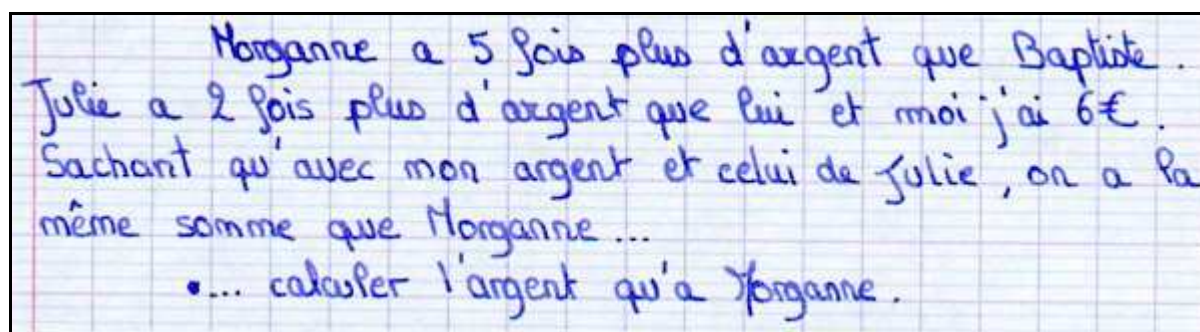 Morganne a 5 fois plus d'argent que Baptiste.
Julie a 2 fois plus d'argent que lui et moi j'ai 6€.
Sachant qu'avec mon argent et celui de Julie, on a la
même somme que Morganne...
•... calculer l'argent qu'a Morganne.